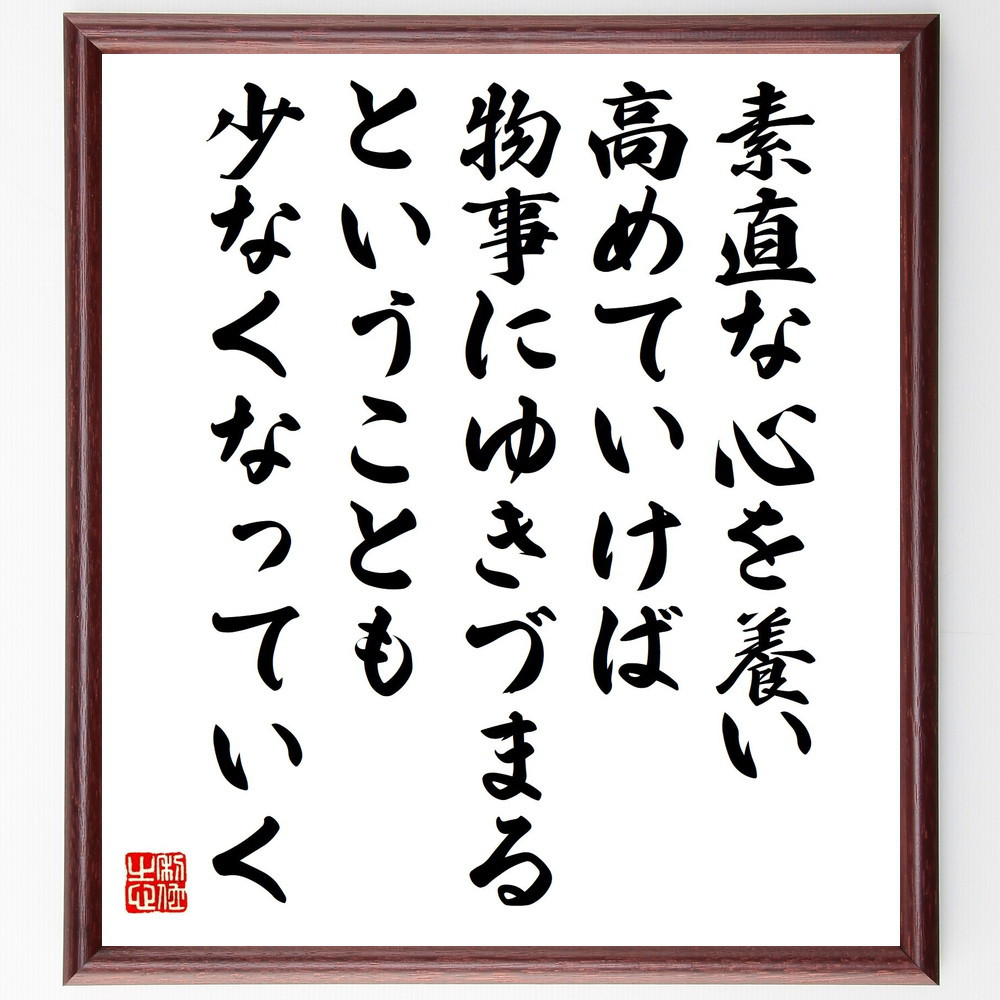 素直な心を養い
高めていけば
物事にゆきづまる
ということも
少なくなっていく